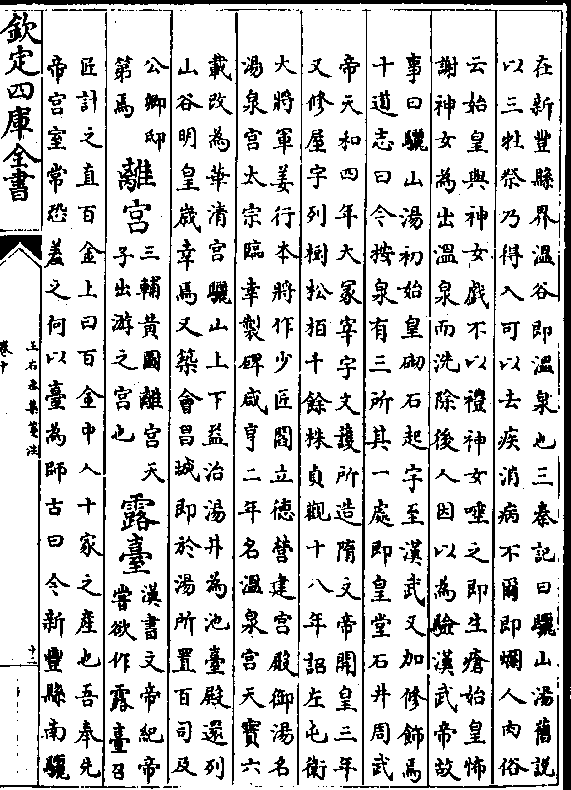 在新豐縣界溫谷即溫泉也三秦記曰驪山湯舊説
以三牲祭乃得入可以去疾消病不爾即爛人肉俗
云始皇與神女戯不以禮神女唾之即生瘡始皇怖
謝神女為出溫泉而洗除後人因以為驗漢武帝故
事曰驪山湯初始皇砌石起宇至漢武又加修飾焉
十道志曰今按泉有三所其一處即皇堂石井周武
帝天和四年大冢宰宇文護所造隋文帝開皇三年
又修屋宇列樹松栢千餘株貞觀十八年詔左屯衛
大將軍姜行本將作少匠閻立德營建宮殿御湯名
湯泉宮太宗臨幸製碑咸亨二年名溫泉宮天寳六
載改為華清宮驪山上下益治湯井為池臺殿還列
山谷明皇嵗幸焉又築會昌城即於湯所置百司及
公卿邸
第焉
離宮
三輔黄圖離宮天
子出游之宮也
露臺
漢書文帝紀帝
嘗欲作露臺召
匠計之直百金上曰百金中人十家之產也吾奉先
帝宮室常恐羞之何以臺為師古曰今新豐縣南驪
欽定四庫全書
王右丞集箋注
卷十
十二